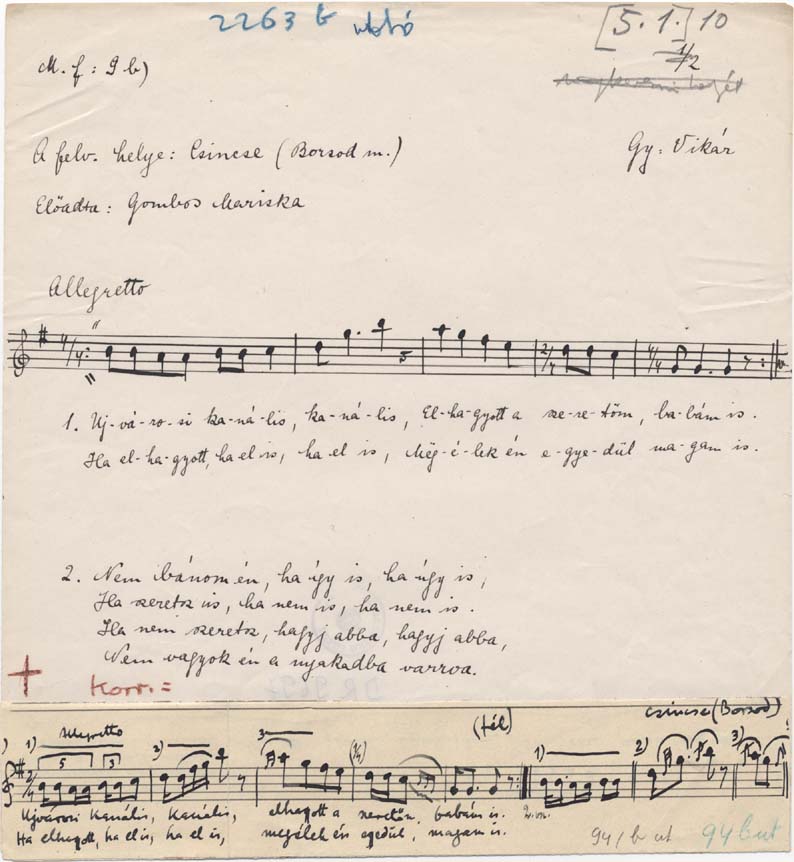 2263 b
[5.1.] 10
1/2
M. f: 9 b)
A felv. helye: Csincse (Borsod m.)
Gy: Vikár
Előadta: Gombos Mariska
Allegretto
4/4 2/4 4/4
1. Uj-vá-ro-si ka-ná-lis, ka-ná-lis, El-ha-gyott a sze-re-tőm, ba-bám is.
Ha el-ha-gyott, ha el is, ha el is, Még-é-lek én e-gye-dűl ma-gam is.
2. Nem bánom én, ha úgy is, ha úgy is,
Ha szeretsz is, ha nem is, ha nem is.
Ha nem szeretsz, hagyj abba, hagyj abba,
Nem vagyok én a nyakadba varrva.
+ Korr. =
Csincse (Borsod)
1) Allegretto 3) 3 (tél) 1) 2) 3)
5 5
2/4 (3/4)
Ujvárosi Kanális, Kanális, elhagott a babám is.
Ha elhagott, ha el is, ha el is, megélek én egedül, magam is.
94/b ut 94 b ut